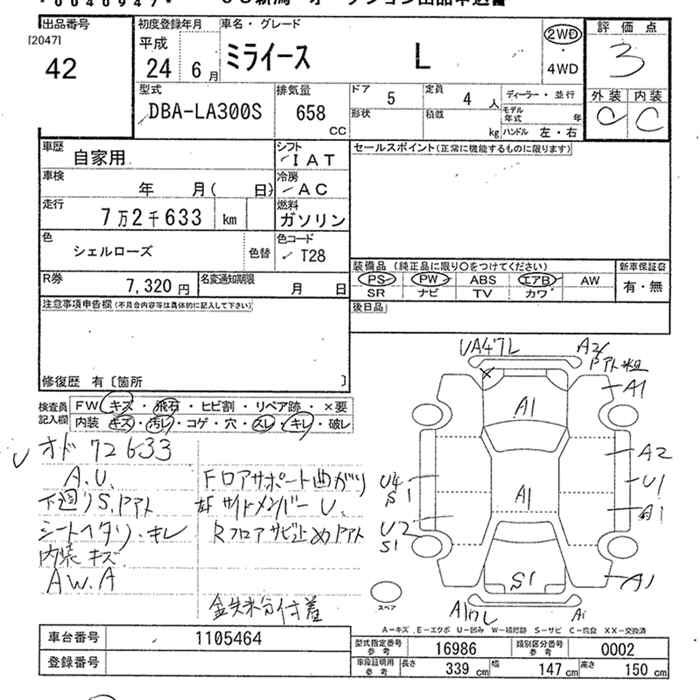 出品番号
[2047]
42
初度登録年月
平成
24 6月
車名・グレード
ミライース L
2WD
・
4WD
評価点
3
外装 内装
C C
型式
DBA-LA300S
排気量
658
CC
ドア 5
定員 4 人
ディーラー・並行
形状
積載 kg
モデル年式 年
ハンドル 左・右
車歴
自家用
シフト
IAT
車検
年 月( 日)
冷房
AC
走行
7万2千633 km
燃料
ガソリン
色
シェルローズ
色替
色コード
T28
R券
7,320円
名変通知期限
月 日
セールスポイント(正常に機能するものに限ります)
装備品(純正品に限り○をつけてください)
PS PW ABS エアB AW
SR ナビ TV カワ
新車保証書
有・無
後日品
注意事項申告欄(不具合内容等は具体的に記入して下さい)
修復歴 有〔箇所 〕
検査員
記入欄
FW キズ・飛石・ヒビ割・リペア跡・×要
内装 キズ・汚レ・コゲ・穴・スレ・キレ・破レ
オド 72633
A.U.
下廻りS.Pアト
シートヘタリ・キレ
内装キズ
AW.A
Fロアサポート曲がり
右Fサイドメンバー U.
Rフロアサビ止めPアト
UA47L
A2
A1
A1
A2
U4
S1
U1
A1
A1
U2
S1
S1
A1
スペア
A17L
A1
A-キズ E-エクボ U-凹み W-補修跡 S-サビ C-腐食 XX-交換済
車台番号
1105464
登録番号
型式指定番号
参考
16986
類別区分番号
参考
0002
車庫証明用
参考
長さ 339 cm
幅 147 cm
高さ 150 cm